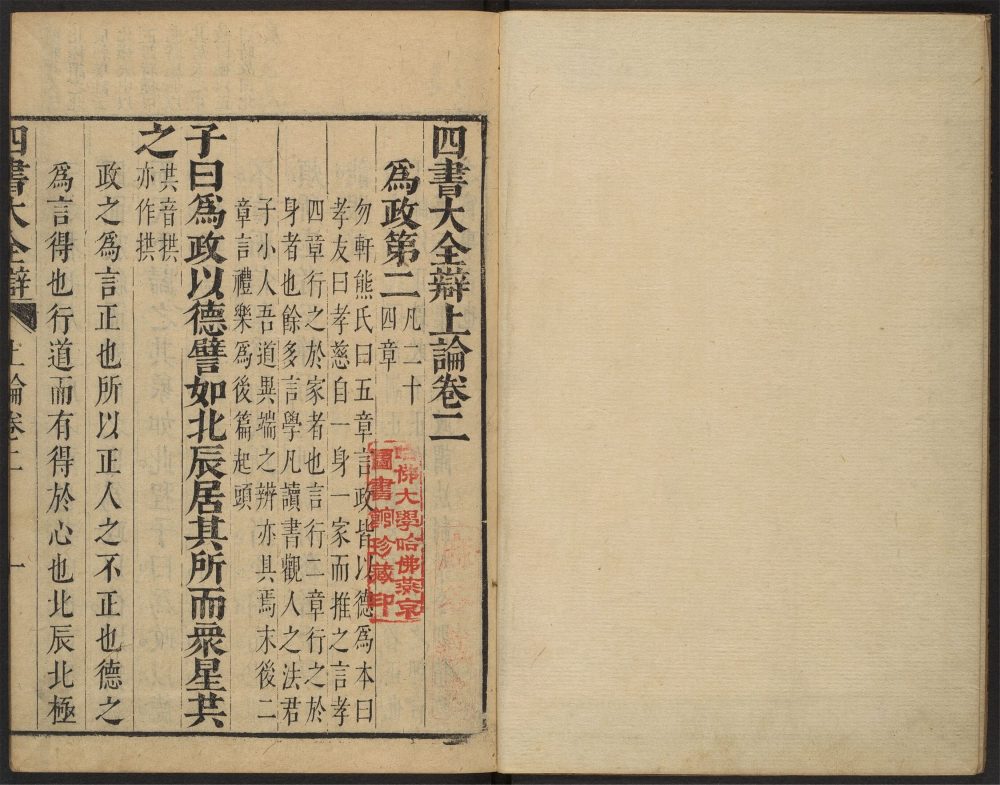 四書大全辯上論卷二
爲政第二凡二十
四章
勿軒熊氏曰五章言政皆以德爲本曰
孝友曰孝慈自一身一家而推之言孝
四章行之於家者也言行二章行之於
身者也餘多言學凡讀書觀人之法君
子小人吾道異端之辨亦具焉末後二
章言禮樂爲後篇起頭
子曰爲政以德譬如北辰居其所而衆星共
之共音拱
亦作拱
政之爲言正也所以正人之不正也德之
爲言得也行道而有得於心也北辰北極
四書大全辯 上論卷二 一
哈佛大學哈佛燕京
圖書館珍藏印